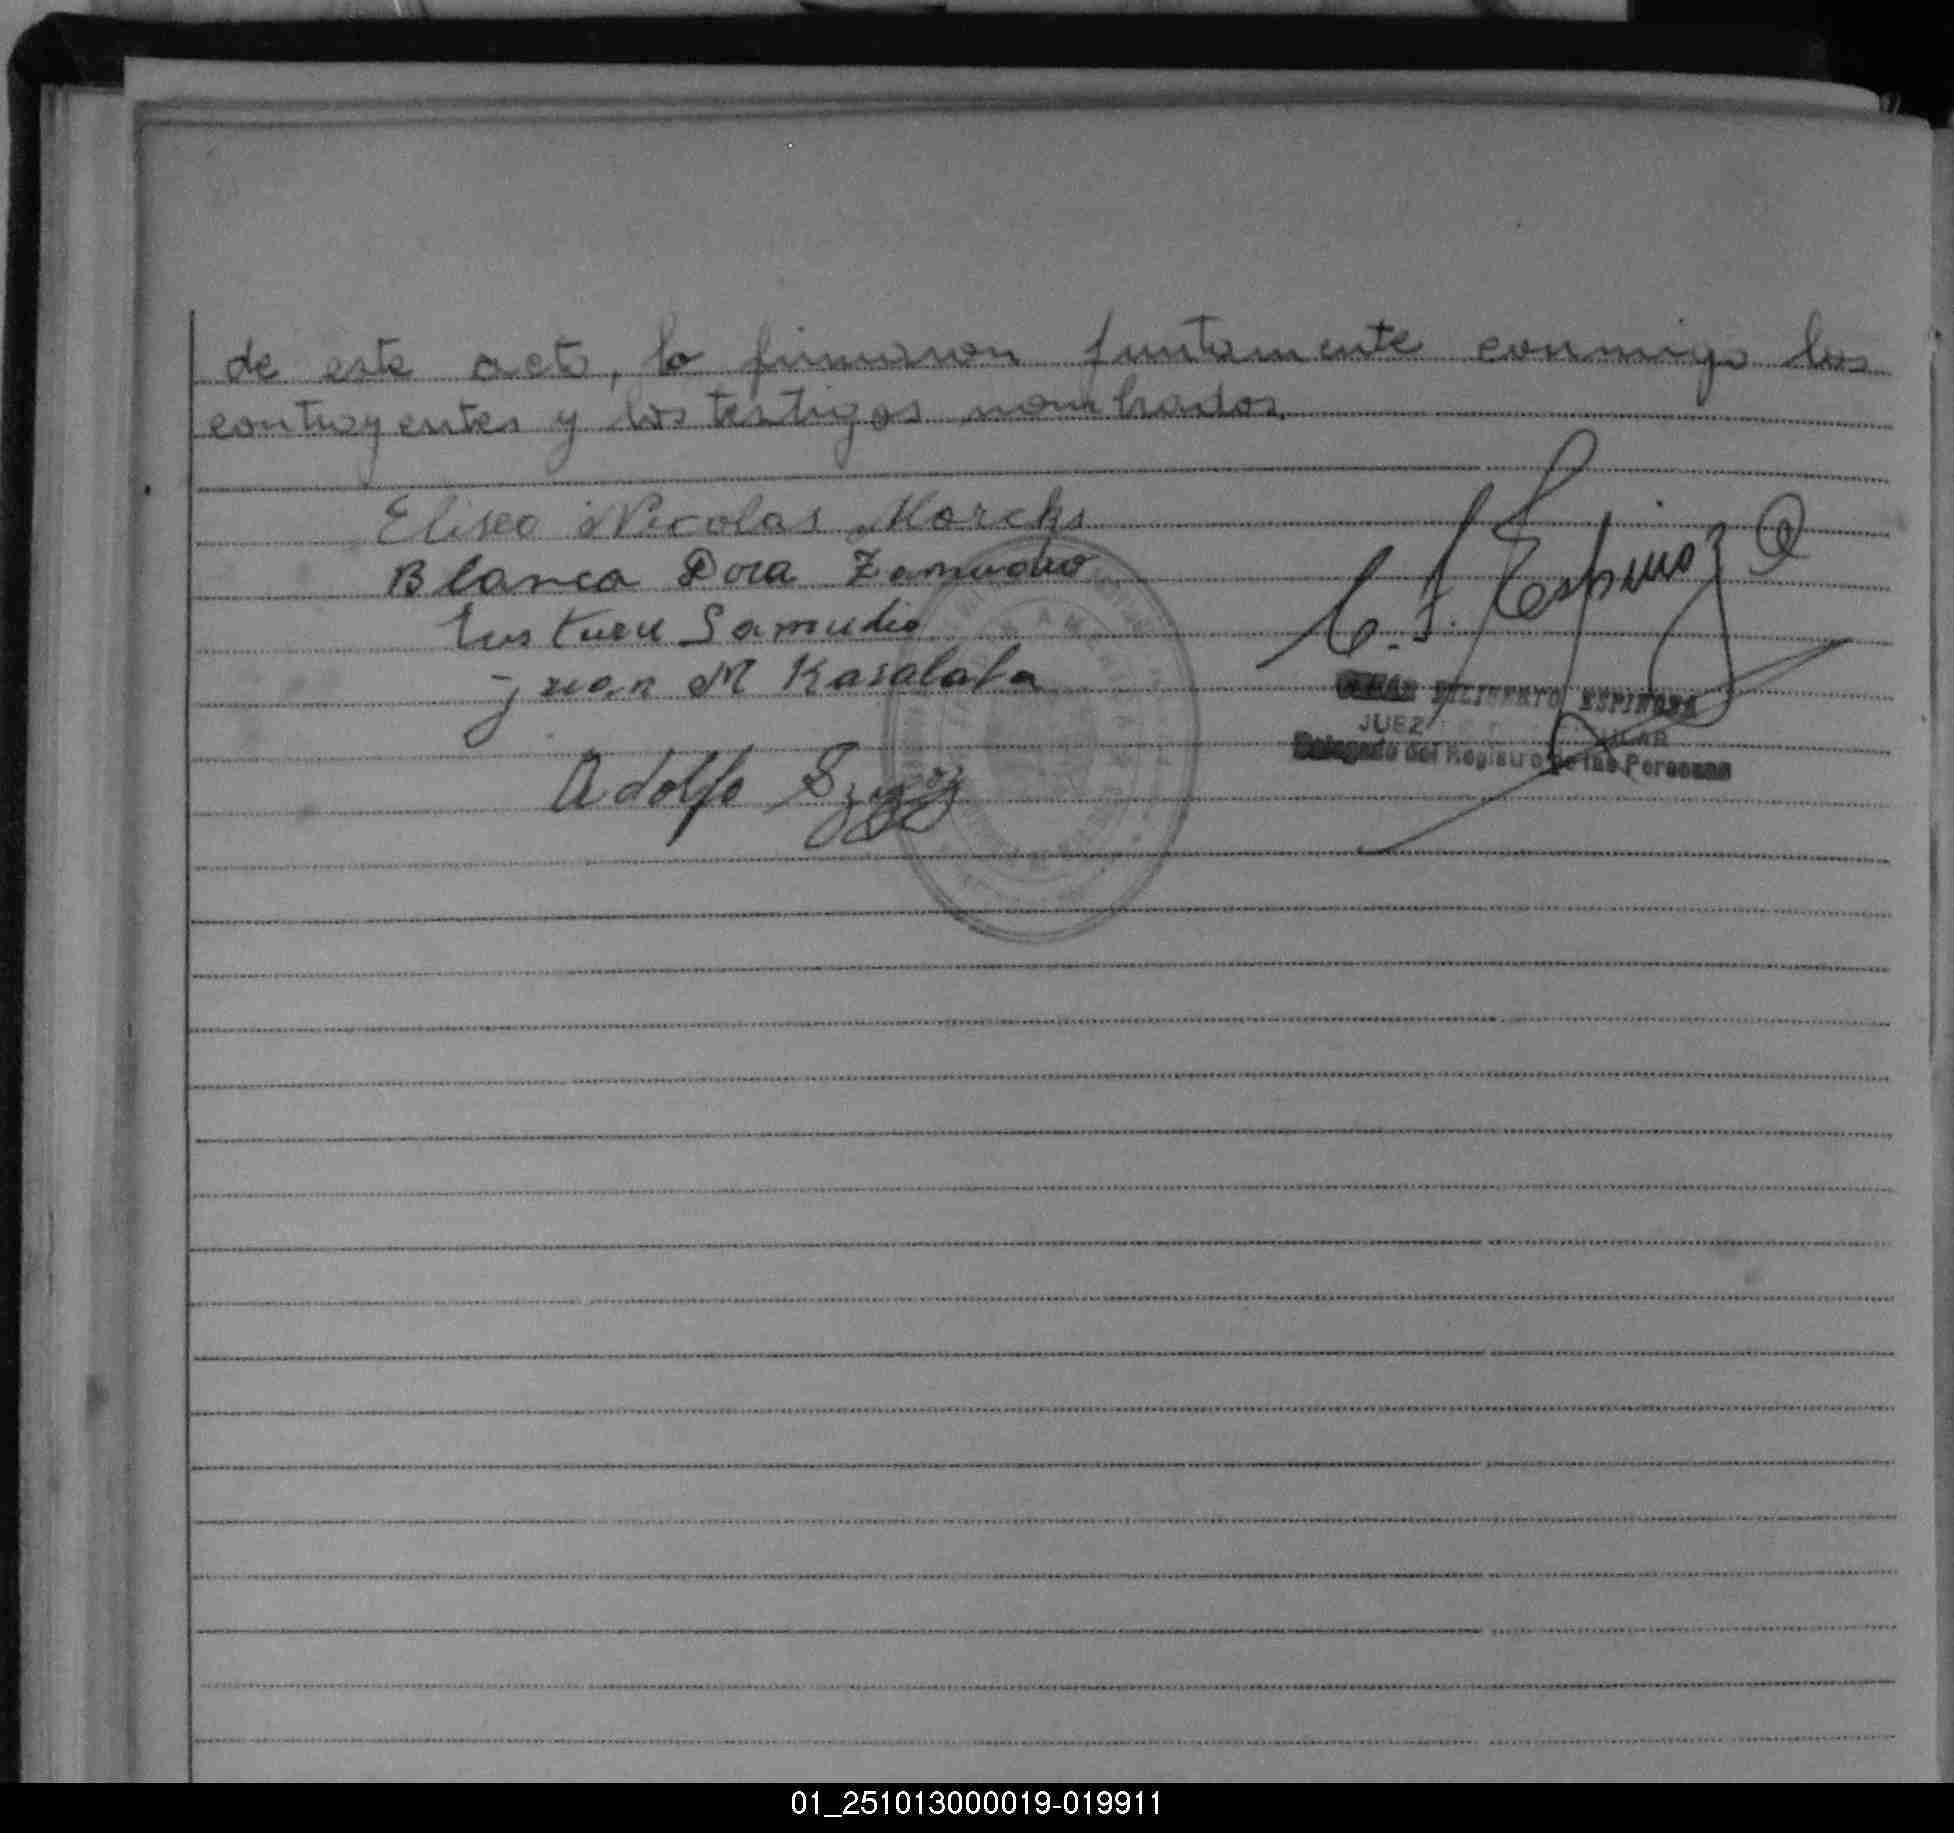 de este acto, lo firmaron juntamente conmigo los
contrayentes y los testigos nombrados.
Eliseo Nicolas Morchs
Blanca Dora Zamudio
Samudio
Juan M Kasalaba
Adolfo
C. F. Espinoza
FILIBERTO ESPINOSA
JUEZ
Delegado del Registro de las Personas
01_251013000019-019911